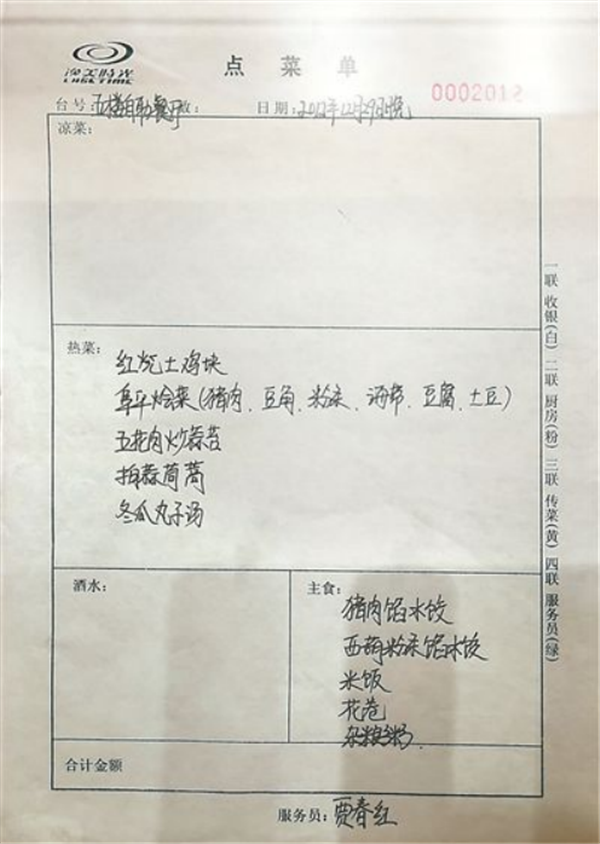 渔美時光
点菜单
LHSETIME
0002012
台号：五楼自助餐厅 数： 日期：2012年12月29日晚
凉菜：
热菜：
红烧土鸡块
阜平烩菜(猪肉、豆角、粉条、海带、豆腐、土豆)
五花肉炒蒜苔
拌蒜茼蒿
冬瓜丸子汤
酒水：
主食：
猪肉馅水饺
西葫粉条馅水饺
米饭
花卷
杂粮粥
合计金额
服务员：贾春红
一联 收银(白) 二联 厨房(粉) 三联 传菜(黄) 四联 服务员(绿)